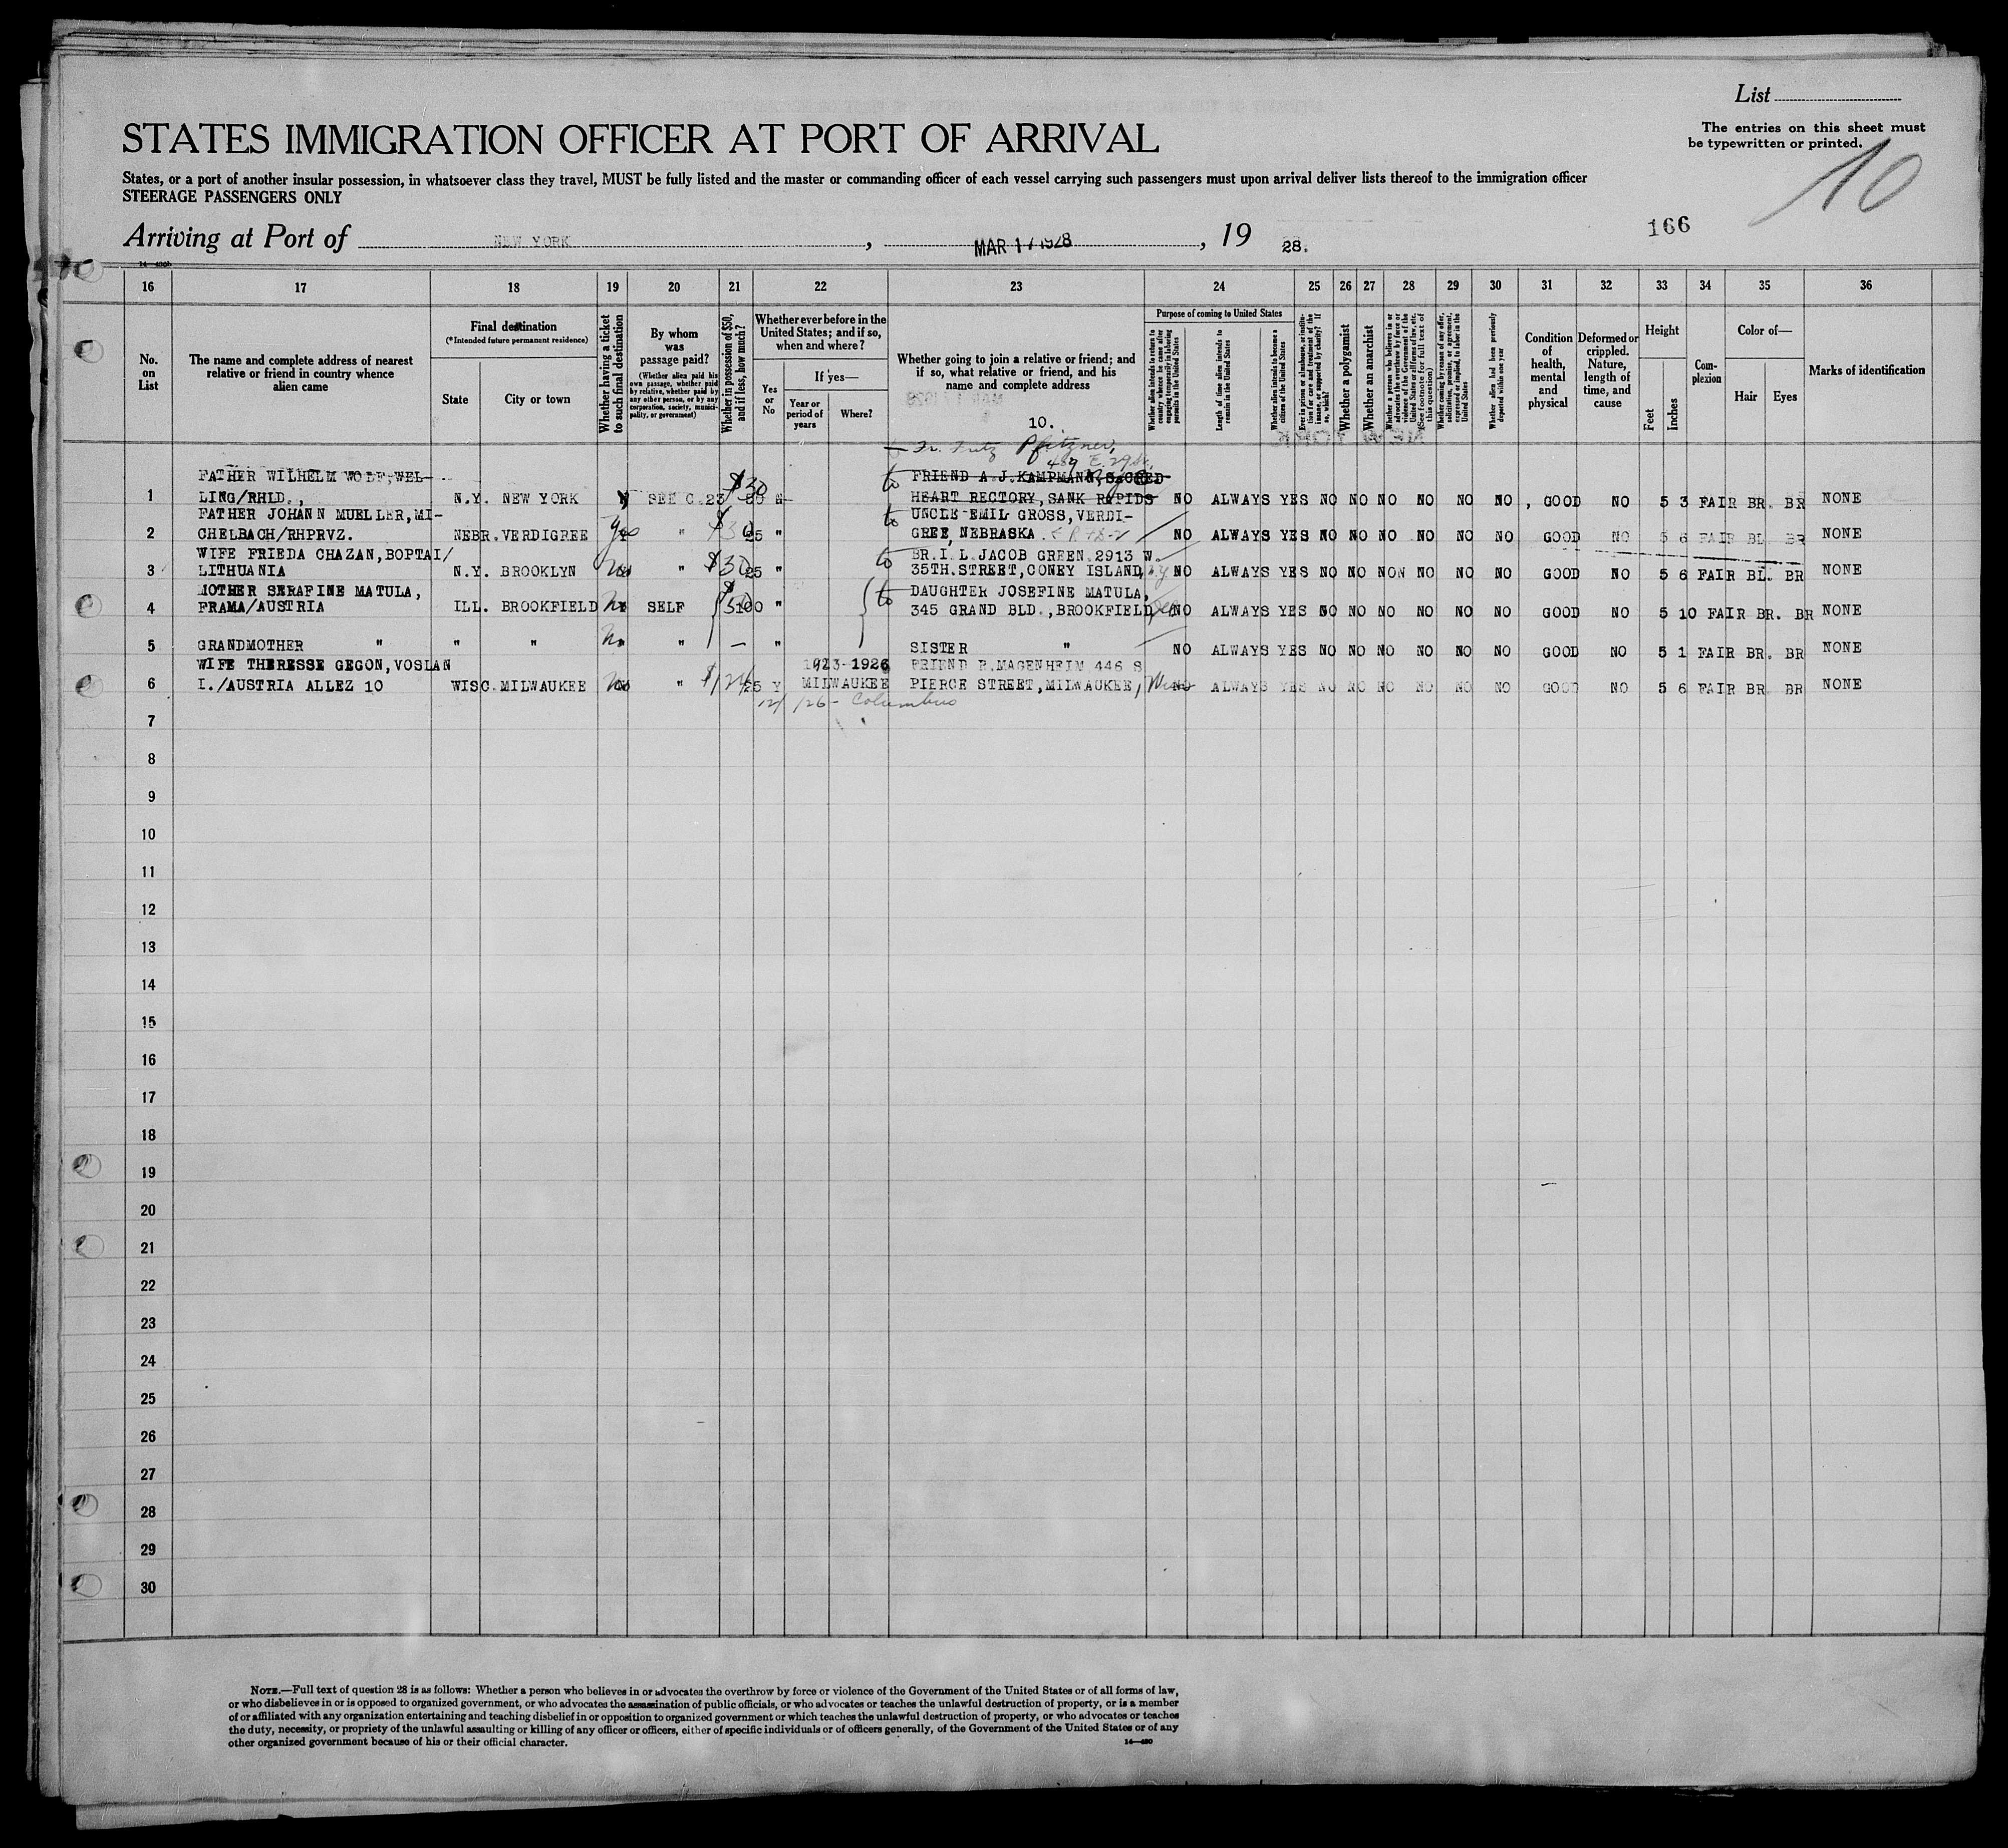 List
The entries on this sheet must
be typewritten or printed.
10
STATES IMMIGRATION OFFICER AT PORT OF ARRIVAL
States, or a port of another insular possession, in whatsoever class they travel, MUST be fully listed and the master or commanding officer of each vessel carrying such passengers must upon arrival deliver lists thereof to the immigration officer
STEERAGE PASSENGERS ONLY
166
Arriving at Port of NEW YORK, MAR 17 1928, 19 28.
16 17 18 19 20 21 22 23 24 25 26 27 28 29 30 31 32 33 34 35 36
No.
on
List
The name and complete address of nearest
relative or friend in country whence
alien came
Final destination
(*Intended future permanent residence)
State
City or town
Whether having a ticket
to such final destination
By whom
was
passage paid?
(Whether alien paid his
own passage, whether paid
by relative, whether paid by
any other person, or by any
corporation, society, munici-
pality, or government)
Whether in possession of $50,
and if less, how much?
Whether ever before in the
United States; and if so,
when and where?
Yes
or
No
If yes—
Year or
period of
years
Where?
Whether going to join a relative or friend; and
if so, what relative or friend, and his
name and complete address
10.
Purpose of coming to United States
Whether alien intends to return to
country whence he came after
engaging temporarily in laboring
pursuits in the United States
Length of time alien intends to
remain in the United States
Whether alien intends to become a
citizen of the United States
Ever in prison or almshouse, or institu-
tion for care and treatment of the
insane, or supported by charity? If
so, which?
Whether a polygamist
Whether an anarchist
Whether a person who believes in or
advocates the overthrow by force or
violence of the Government of the
United States or all forms of law, etc.
(See footnote for full text of
this question)
Whether coming by reason of any offer,
solicitation, promise, or agreement,
expressed or implied, to labor in the
United States
Whether alien had been previously
deported within one year
Condition
of
health,
mental
and
physical
Deformed or
crippled.
Nature,
length of
time, and
cause
Height
Feet
Inches
Com-
plexion
Color of—
Hair
Eyes
Marks of identification
Fr. Fritz Pfitzner,
489 E. 29th
FATHER WILHELM WOLF, WEL- $30 to FRIEND A.J.KAMPMANN, SACRED
1 LING/RHLD., N.Y. NEW YORK SEE C.23 HEART RECTORY, SANK RAPIDS NO ALWAYS YES NO NO NO NO NO NO , GOOD NO 5 3 FAIR BR. BR NONE
FATHER JOHANN MUELLER, MI- to UNCLE EMIL GROSS, VERDI-
2 CHELBACH/RHPRVZ. NEBR. VERDIGREE Yes " $30 25 " GREE, NEBRASKA. NO ALWAYS YES NO NO NO NO NO NO GOOD NO 5 6 FAIR BL. BR NONE
WIFE FRIEDA CHAZAN, BOPTAI/ to BR. I. L. JACOB GREEN 2913 W.
3 LITHUANIA N.Y. BROOKLYN No " $30 25 " 35TH.STREET, CONEY ISLAND, N.Y. NO ALWAYS YES NO NO NON NO NO NO GOOD NO 5 6 FAIR BL. BR NONE
MOTHER SERAFINE MATULA, to DAUGHTER JOSEFINE MATULA,
4 FRAMA/AUSTRIA ILL. BROOKFIELD No SELF $50 100 " 345 GRAND BLD., BROOKFIELD, NO ALWAYS YES NO NO NO NO NO NO GOOD NO 5 10 FAIR BR. BR NONE
5 GRANDMOTHER " " " No " — " SISTER " NO ALWAYS YES NO NO NO NO NO NO GOOD NO 5 1 FAIR BR. BR NONE
WIFE THERESSE GEGON, VOSLAN 1923-1926 FRIEND P. MAGENHEIM 446 S
6 I./AUSTRIA ALLEZ 10 WISC. MILWAUKEE No " 25 Y MILWAUKEE PIERCE STREET, MILWAUKEE, Wis NO ALWAYS YES NO NO NO NO NO NO GOOD NO 5 6 FAIR BR. BR NONE
12/ /26 - Columbus
7
8
9
10
11
12
13
14
15
16
17
18
19
20
21
22
23
24
25
26
27
28
29
30
NOTE.—Full text of question 28 is as follows: Whether a person who believes in or advocates the overthrow by force or violence of the Government of the United States or of all forms of law,
or who disbelieves in or is opposed to organized government, or who advocates the assassination of public officials, or who advocates or teaches the unlawful destruction of property, or is a member
of or affiliated with any organization entertaining and teaching disbelief in or opposition to organized government or which teaches the unlawful destruction of property, or who advocates or teaches
the duty, necessity, or propriety of the unlawful assaulting or killing of any officer or officers, either of specific individuals or of officers generally, of the Government of the United States or of any
other organized government because of his or their official character.
14—430